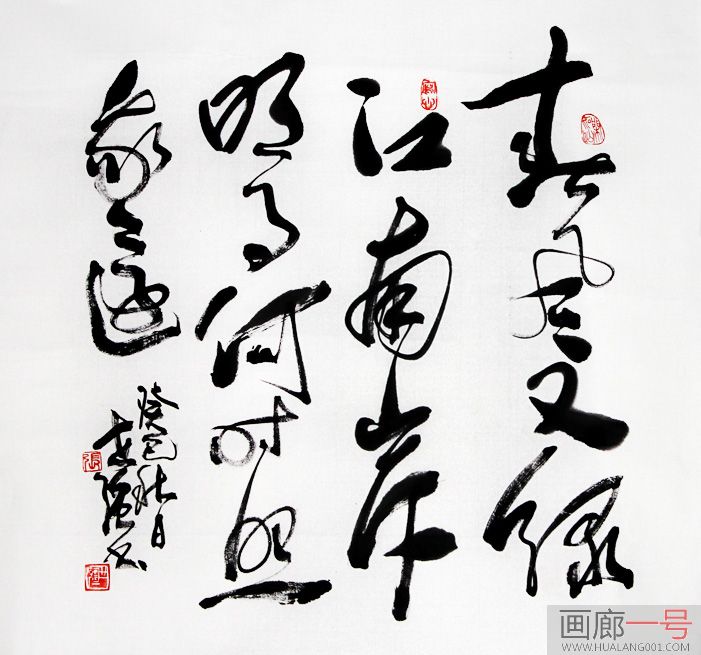 春風又綠
江南岸
明月何時照
我還
癸巳秋日
張
画廊一号
WWW.HUALANG001.COM